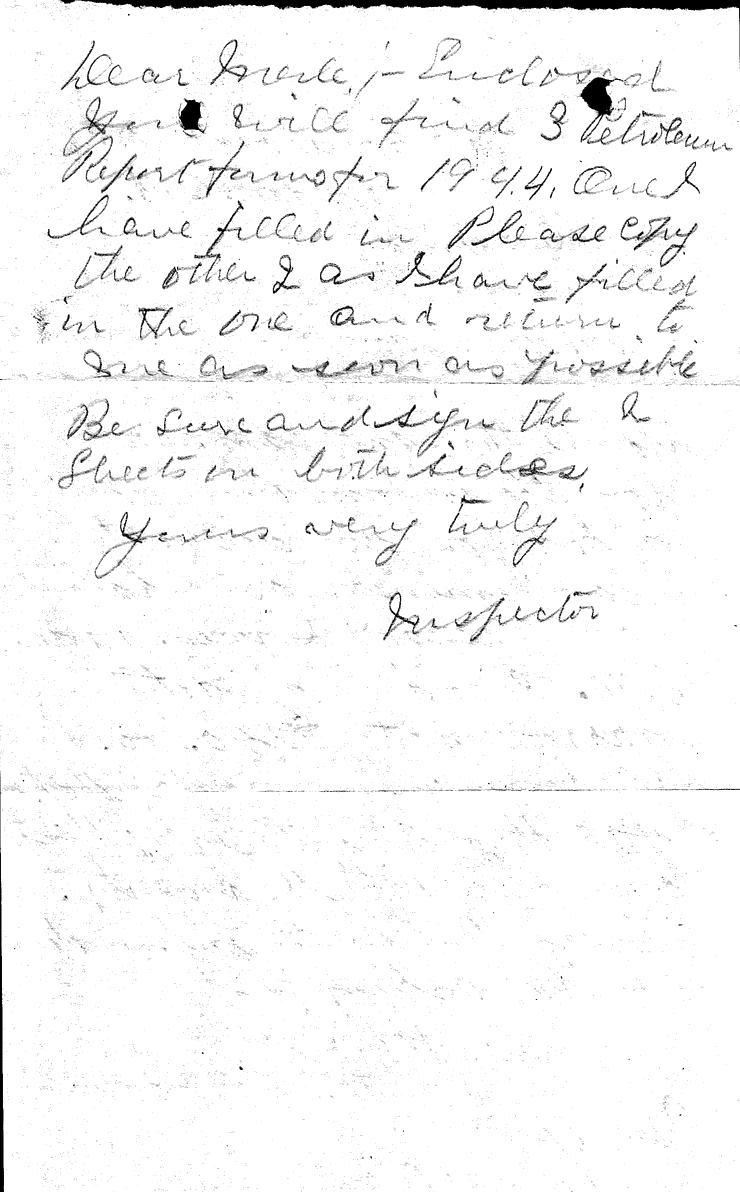 Dear Merle;- Enclosed
You will find 3 Petroleum
Report forms for 1944. One I
have filled in Please copy
the other 2 as I have filled
in the one and return to
me as soon as possible
Be sure and sign the 2
Sheets on both sides.
Yours very truly
Inspector